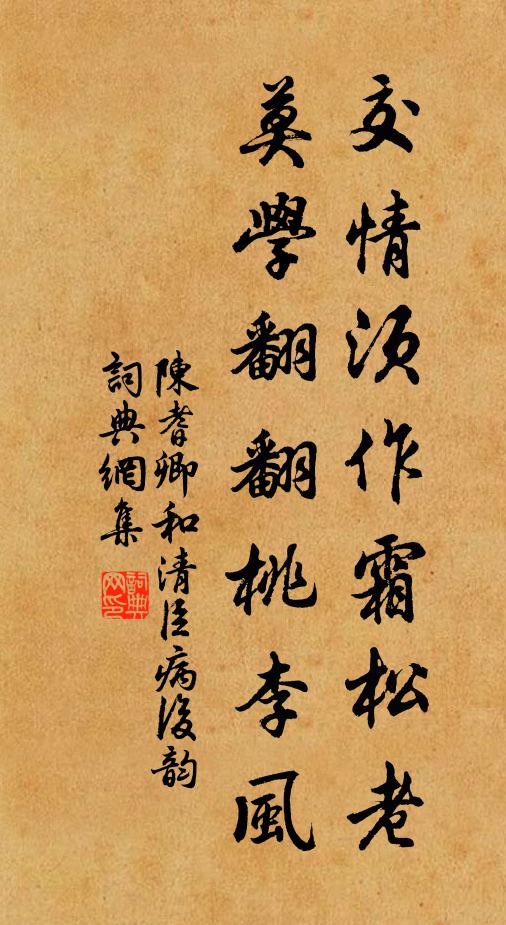 交情須作霜松老
莫學翻翻桃李風
陳耆卿和清臣病後韵
詞典網集
詞典网印